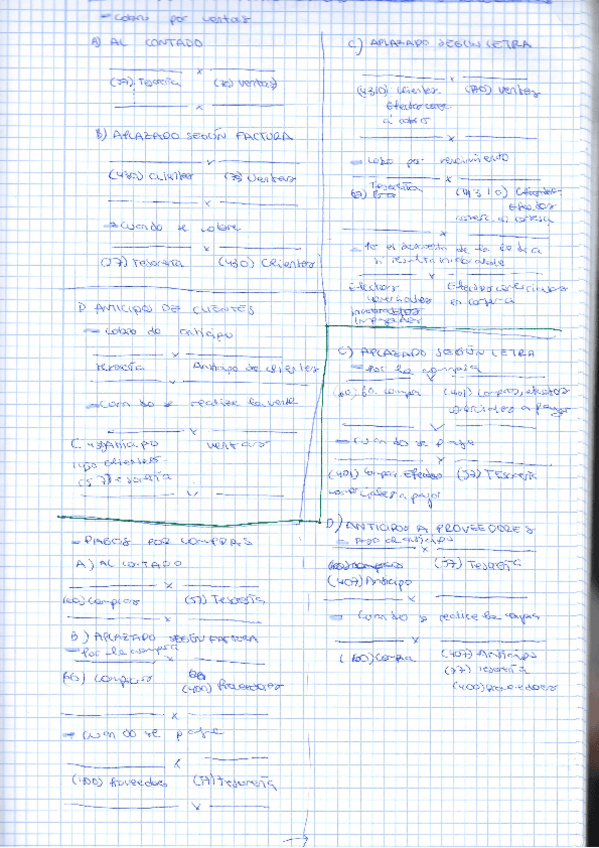 - Cobro por ventas
A) AL CONTADO
(57) Tesorería (70) Ventas
B) APLAZADO SEGÚN FACTURA
(430) Clientes (70) Ventas
→ cuando se cobre
(57) Tesorería (430) Clientes
C) APLAZADO SEGÚN LETRA
(4310) Clientes (70) Ventas
Efectos com
a cobro
- Cobro por vencimiento
Tesorería (4310) Clientes
Efectos
- Si el de la
Efectos Efectos comerciales
comerciales en cartera
impagados
D ANTICIPO DE CLIENTES
- cobro do anticipo
Tesorería Anticipo de clientes
- Cuando se realize la venta
C. 438 Anticipo ventas
clientes
(57) Tesorería
- PAGOS POR COMPRAS
A) AL CONTADO
(60) Compras (57) Tesorería
B) APLAZADO SEGÚN FACTURA
- Por la compra
(60) Compras (400) Proveedores
→ cuando se page
(400) Proveedores (57) Tesorería
C) APLAZADO SEGÚN LETRA
- Por la compra
(60) compra (401) efectos
comerciales a pagar
- Cuando se page
(401) Efectos (57) Tesorería
comerciales a pagar
D) ANTICIPOS A PROVEEDORES
- pago de anticipo
(60) compras (57) Tesorería
(407) Anticipo
- Cuando se realice la compra
(60) Compra (407) Anticipo
(57) Tesorería
(400) Proveedores